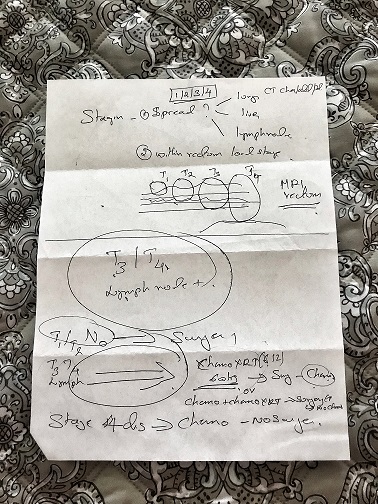 1 2 3 4
Stagin - ① Spread ?
lung CT chest/abd/pel
liver
lymphnode
② within rectum local stage
T1 T2 T3 T4
MRI rectum
T3 / T4
Lymph node +
T1/T2 N0 → Surgery
T3 T4 Lymph → Chemo XRT → Surg - Chemo
or
Chemo + chemo XRT →
Stage 4 dis → Chemo - No Surger.